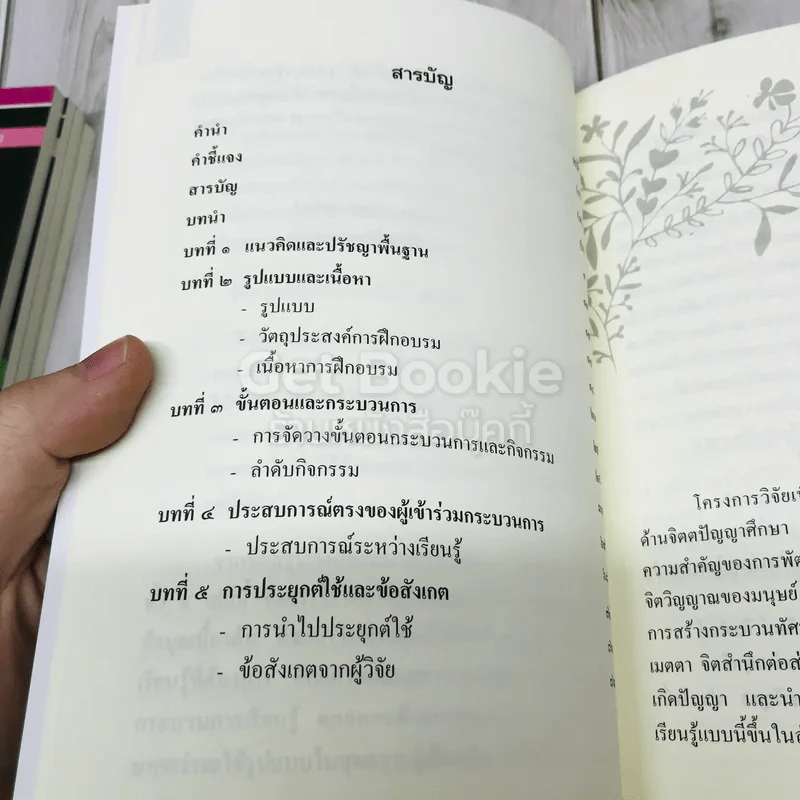 สารบัญ
คำนำ
คำชี้แจง
สารบัญ
บทนำ
บทที่ ๑ แนวคิดและปรัชญาพื้นฐาน
บทที่ ๒ รูปแบบและเนื้อหา
- รูปแบบ
- วัตถุประสงค์การฝึกอบรม
- เนื้อหาการฝึกอบรม
บทที่ ๓ ขั้นตอนและกระบวนการ
- การจัดวางขั้นตอนกระบวนการและกิจกรรม
- ลำดับกิจกรรม
บทที่ ๔ ประสบการณ์ตรงของผู้เข้าร่วมกระบวนการ
- ประสบการณ์ระหว่างเรียนรู้
บทที่ ๕ การประยุกต์ใช้และข้อสังเกต
- การนำไปประยุกต์ใช้
- ข้อสังเกตจากผู้วิจัย
Get Bookie
ร้านหนังสือบุ๊คกี้
โครงการวิจัย
ด้านจิตตปัญญาศึกษา
ความสำคัญของการ
จิตวิญญาณของมนุษย์
การสร้างกระบวน
เมตตา จิตสำนึกต่อ
เกิดปัญญา และนำ
เรียนรู้แบบนี้ขึ้นใน